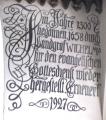 Im Jahre 1500
1658 durch
Landgraf
für den evangelischen
Gottesdienst wieder
hergestellt. Erneuert
1927